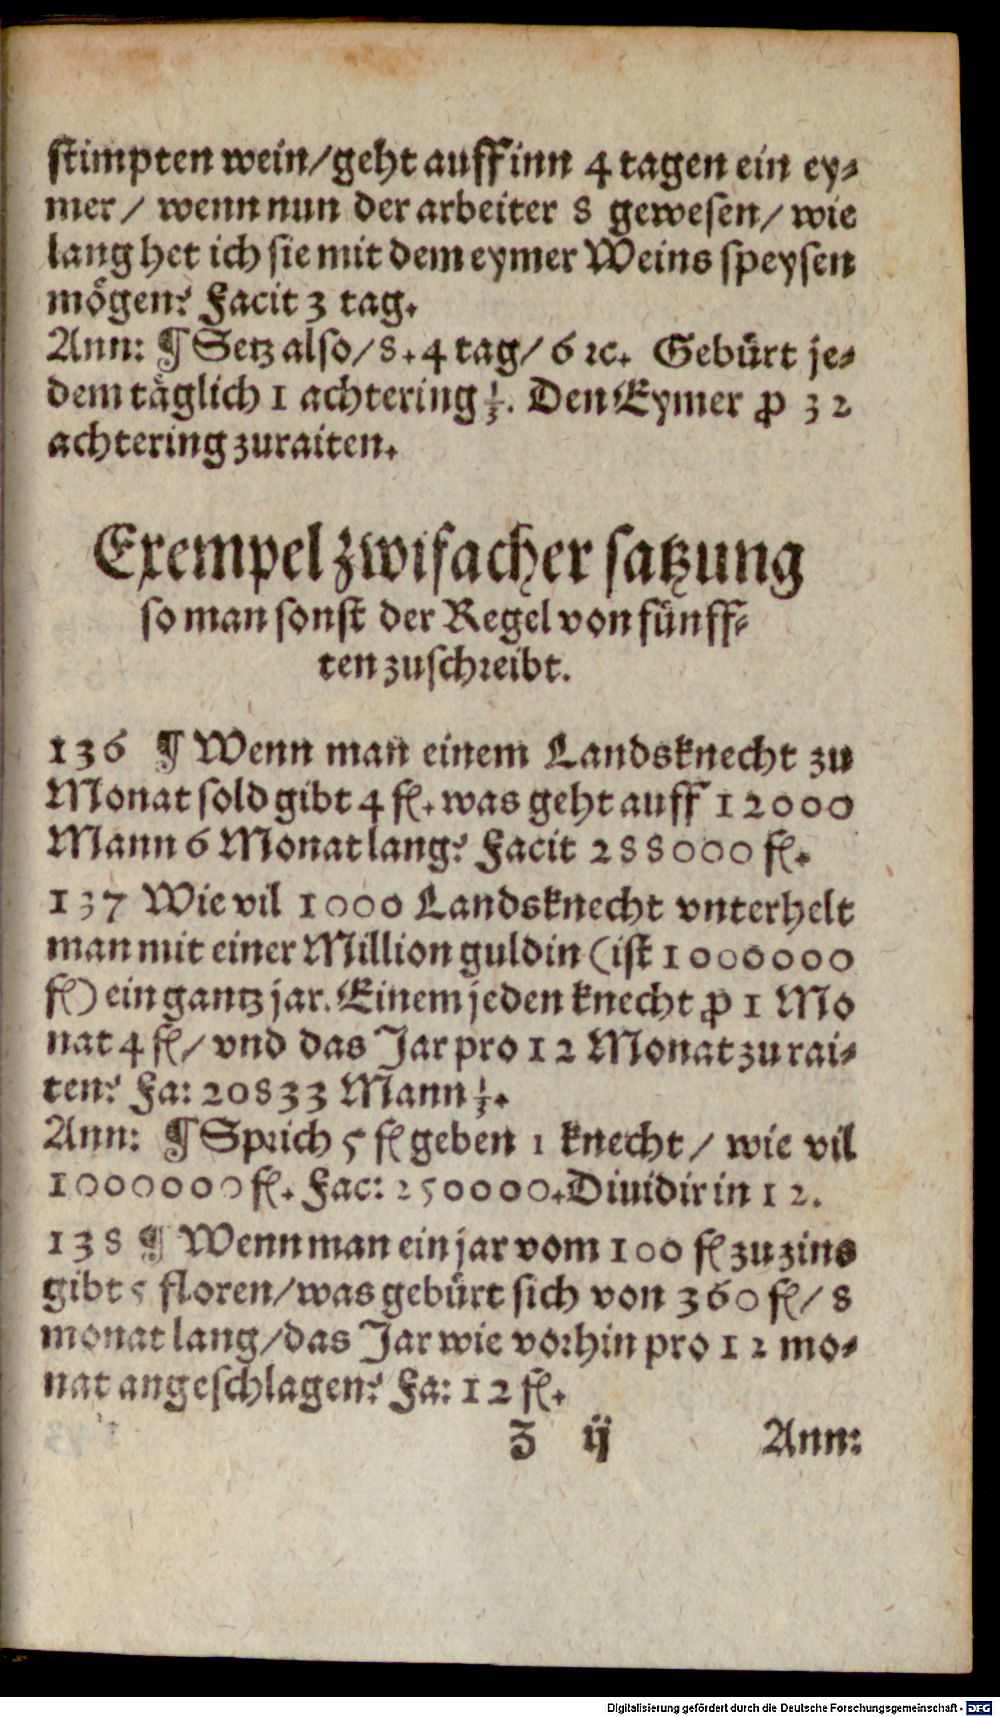 stimpten wein/geht auff inn 4 tagen ein ey⸗
mer / wenn nun der arbeiter 8 gewesen/ wie
lang het ich sie mit dem eymer Weins speysen
mögen? Facit 3 tag.
Ann: ¶ Setz also/8.4 tag/ 6 ꝛc. Gebürt je⸗
dem täglich 1 achtering 1/3. Den Eymer ꝓ 32
achtering zuraiten.
Exempel zwifacher satzung
so man sonst der Regel von fünff⸗
ten zuschreibt.
136 ¶ Wenn man einem Landsknecht zu
Monat sold gibt 4 fl. was geht auff 12000
Mann 6 Monat lang? Facit 288000 fl.
137 Wie vil 1000 Landsknecht vnterhelt
man mit einer Million guldin (ist 1000000
fl) ein gantz jar. Einem jeden knecht ꝓ 1 Mo
nat 4 fl/ vnd das Jar pro 12 Monat zu rai⸗
ten? Fa: 20833 Mann 1/3.
Ann: ¶ Sprich 5 fl geben 1 knecht / wie vil
1000000 fl. Fac: 250000. Diuidir in 12.
138 ¶ Wenn man ein jar vom 100 fl zu zins
gibt 5 floren/was gebürt sich von 360 fl/ 8
monat lang/das Jar wie vorhin pro 12 mo⸗
nat angeschlagen? Fa: 12 fl.
Z ij Ann:
Digitalisierung gefördert durch die Deutsche Forschungsgemeinschaft - DFG